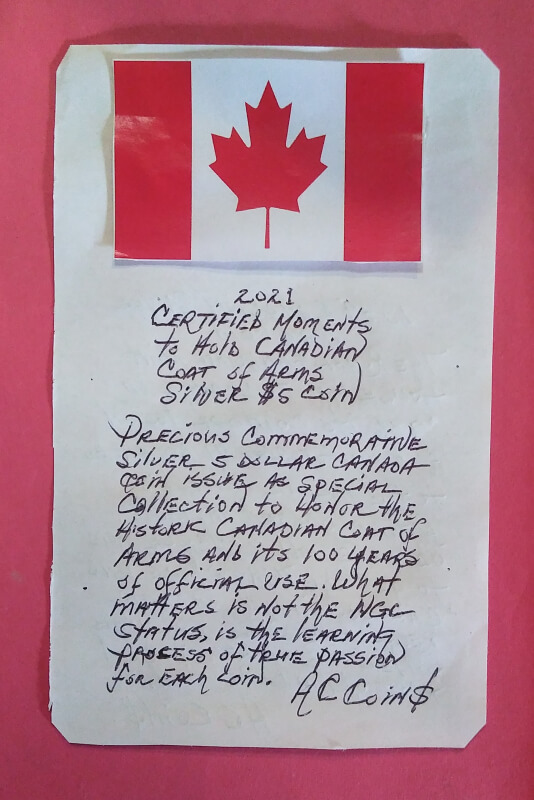 2021
CERTIFIED MOMENTS
to Hold CANADIAN
COAT of ARMS
SilVER $5 COIN
PRECIOUS COMMEMORATIVE
SilVER 5 DOLLAR CANADA
COIN ISSUE AS SPECIAL
COllECTION to HONOR the
HISTORIC CANADIAN COAT of
ARMS AND its 100 YEARS
of officiAL USE. WHAT
MATTERS IS Not the NGC
STATUS, is the lEARNING
PROCESS of TRUE PASSION
for EACH COIN.
AC COIN$